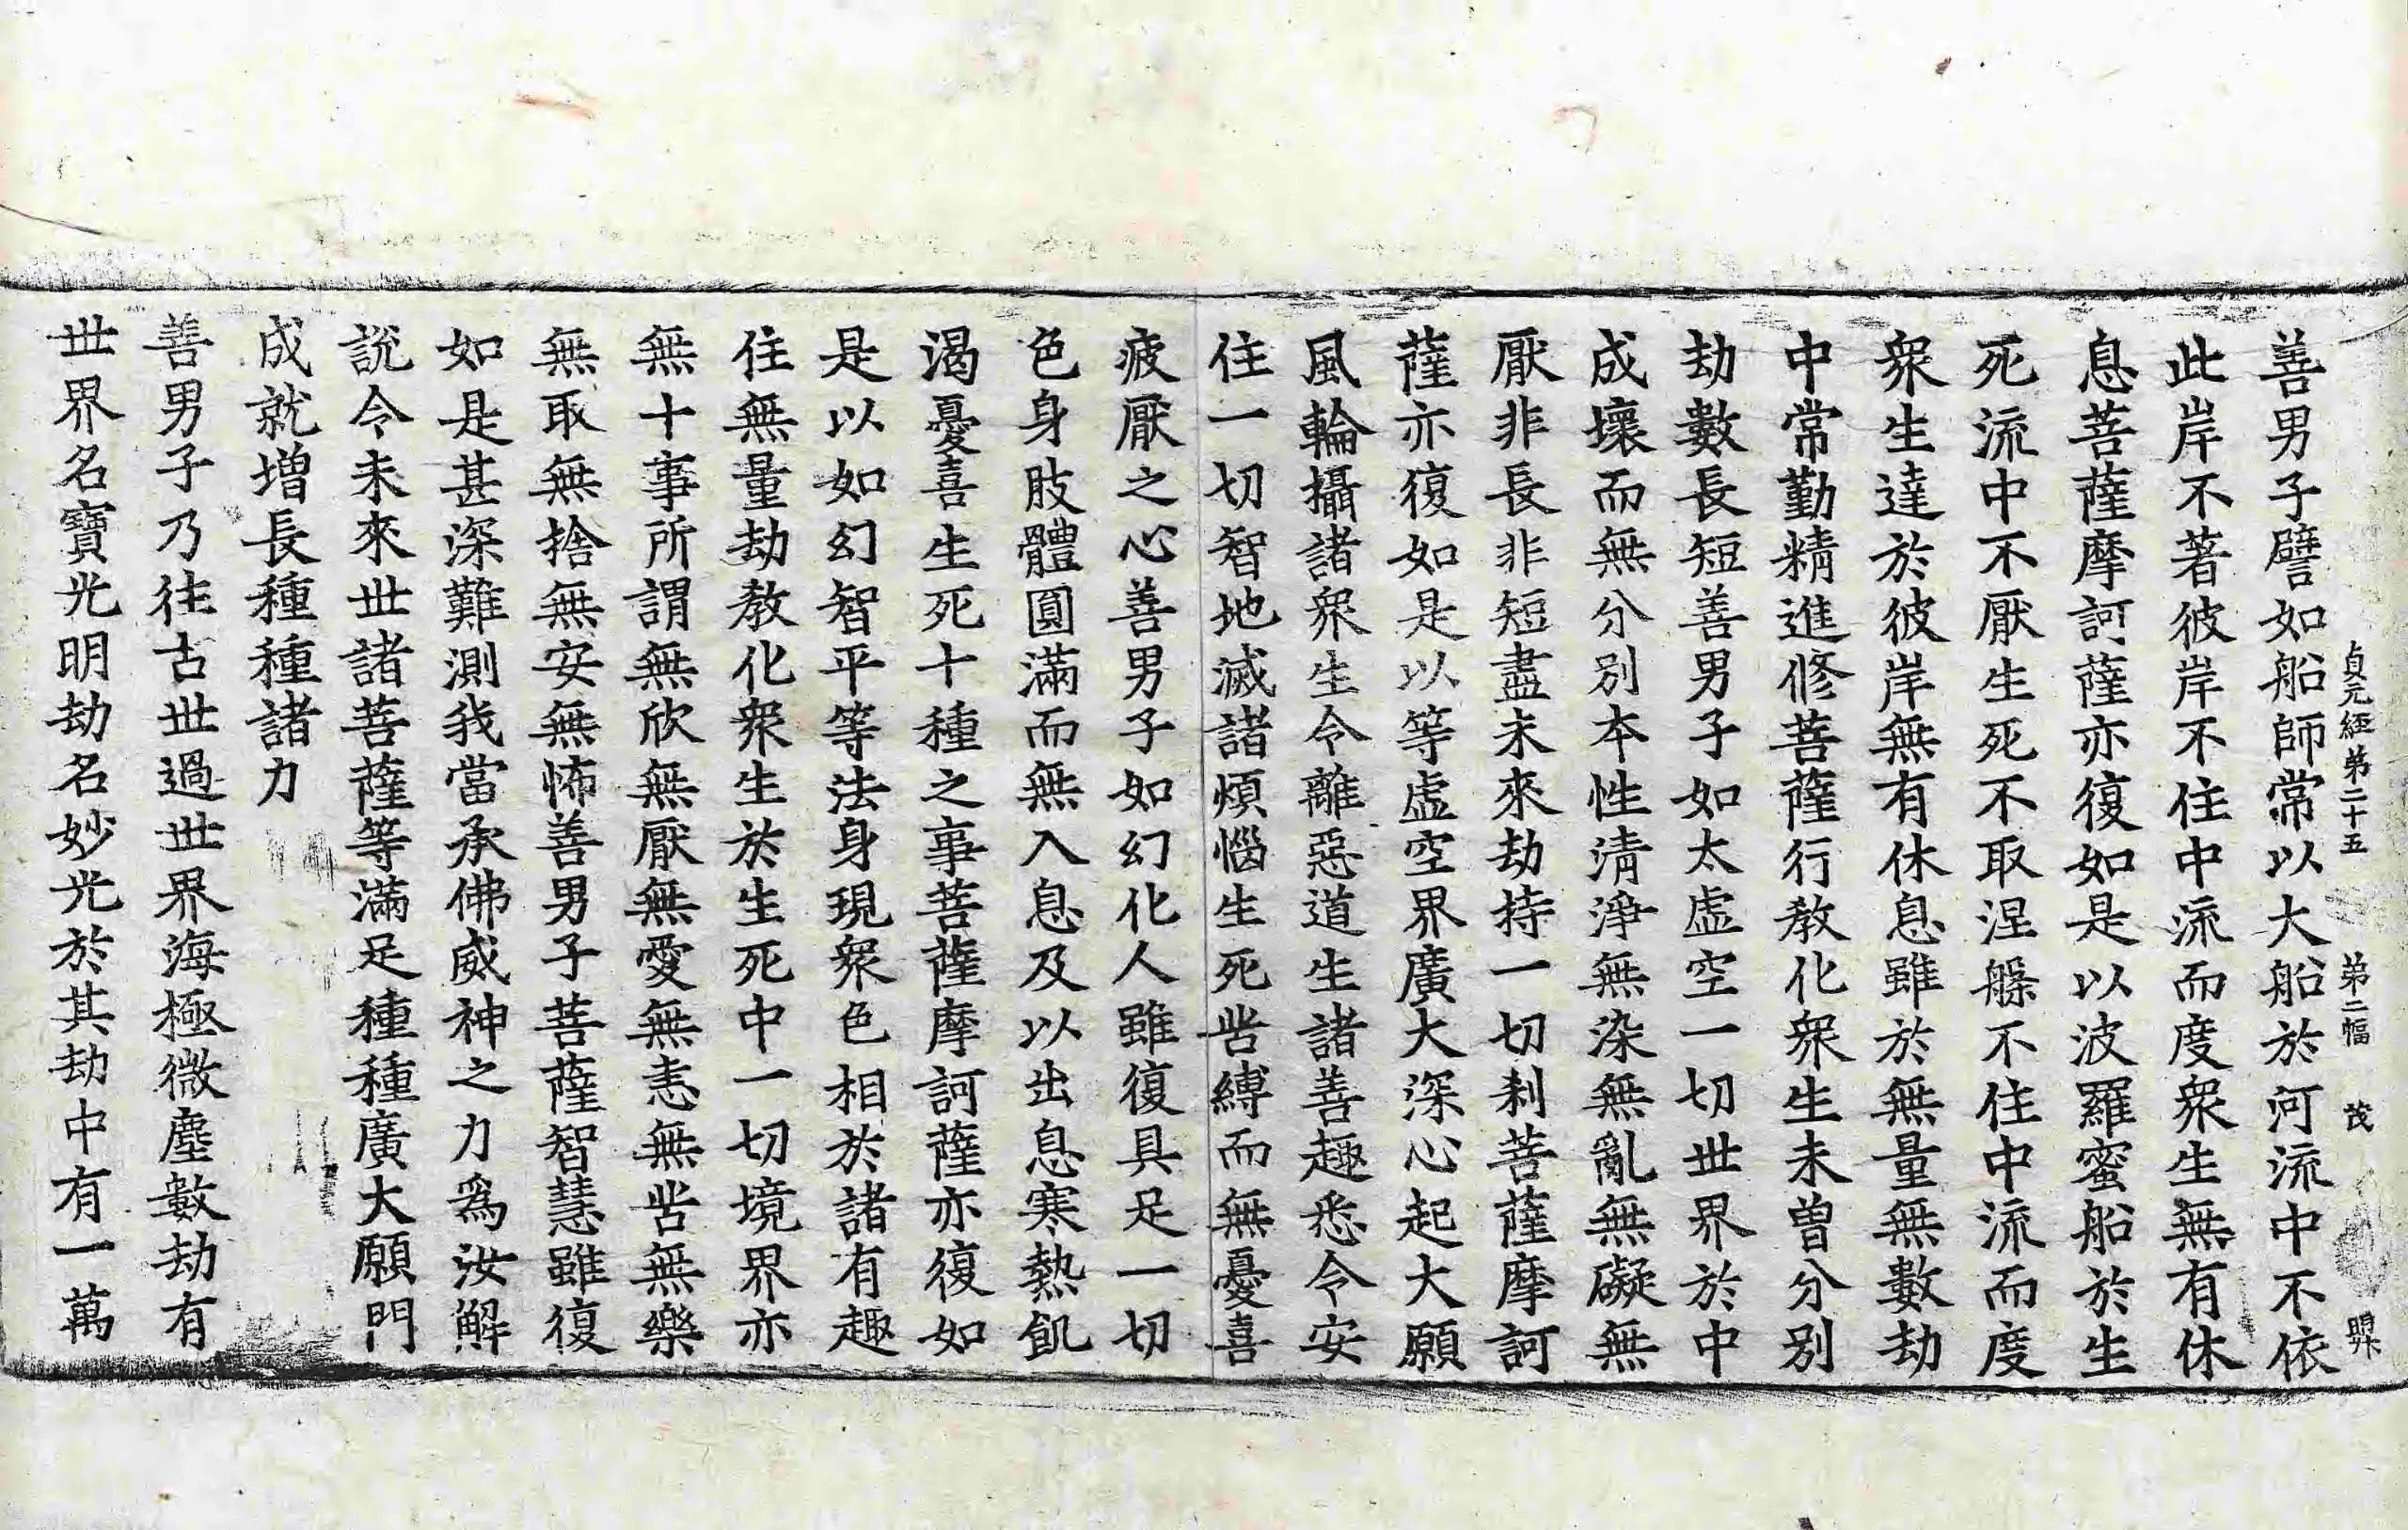 貞元經第二十五　第二幅　茂
善男子譬如船師常以大船於河流中不依
此岸不著彼岸不住中流而度衆生無有休
息菩薩摩訶薩亦復如是以波羅蜜船於生
死流中不厭生死不取涅槃不住中流而度
衆生達於彼岸無有休息雖於無量無數劫
中常勤精進修菩薩行教化衆生未曾分別
劫數長短善男子如太虛空一切世界於中
成壞而無分別本性清淨無染無亂無礙無
厭非長非短盡未來劫持一切剎菩薩摩訶
薩亦復如是以等虛空界廣大深心起大願
風輪攝諸衆生令離惡道生諸善趣悉令安
住一切智地滅諸煩惱生死苦縛而無憂喜
疲厭之心善男子如幻化人雖復具足一切
色身肢體圓滿而無入息及以出息寒熱飢
渴憂喜生死十種之事菩薩摩訶薩亦復如
是以如幻智平等法身現衆色相於諸有趣
住無量劫教化衆生於生死中一切境界亦
無十事所謂無欣無厭無愛無恚無苦無樂
無取無捨無安無怖善男子菩薩智慧雖復
如是甚深難測我當承佛威神之力爲汝解
說令未來世諸菩薩等滿足種種廣大願門
成就增長種種諸力
善男子乃往古世過世界海極微塵數劫有
世界名寶光明劫名妙光於其劫中有一萬